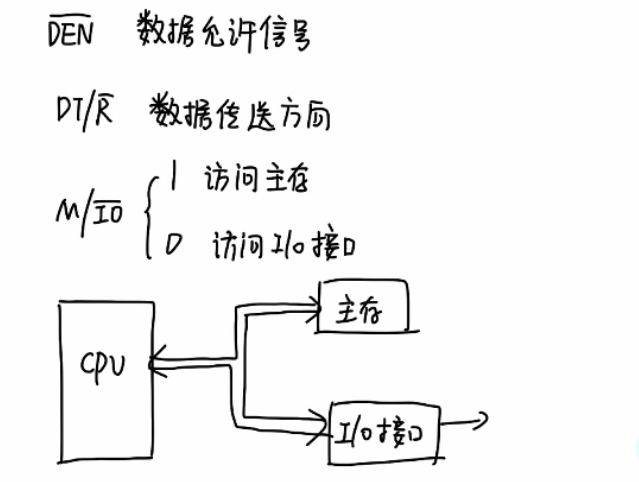 D̅E̅N̅ 数据允许信号
DT/R̅ 数据传送方向
M/I̅O̅ 1 访问主存
0 访问I/O接口
主存
CPU
I/O接口